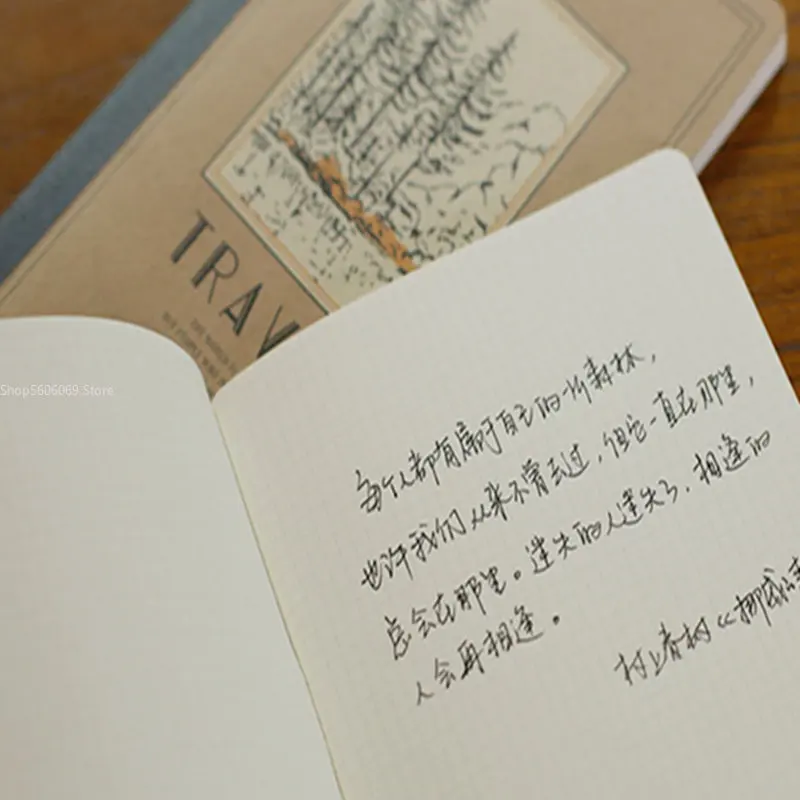 TRAV
Shop5606069 Store
每个人都有属于自己的一片森林，
也许我们从来不曾去过，但它一直在那里，
总会在那里。迷失的人迷失了，相逢的
人会再相逢。
村上春树《挪威的